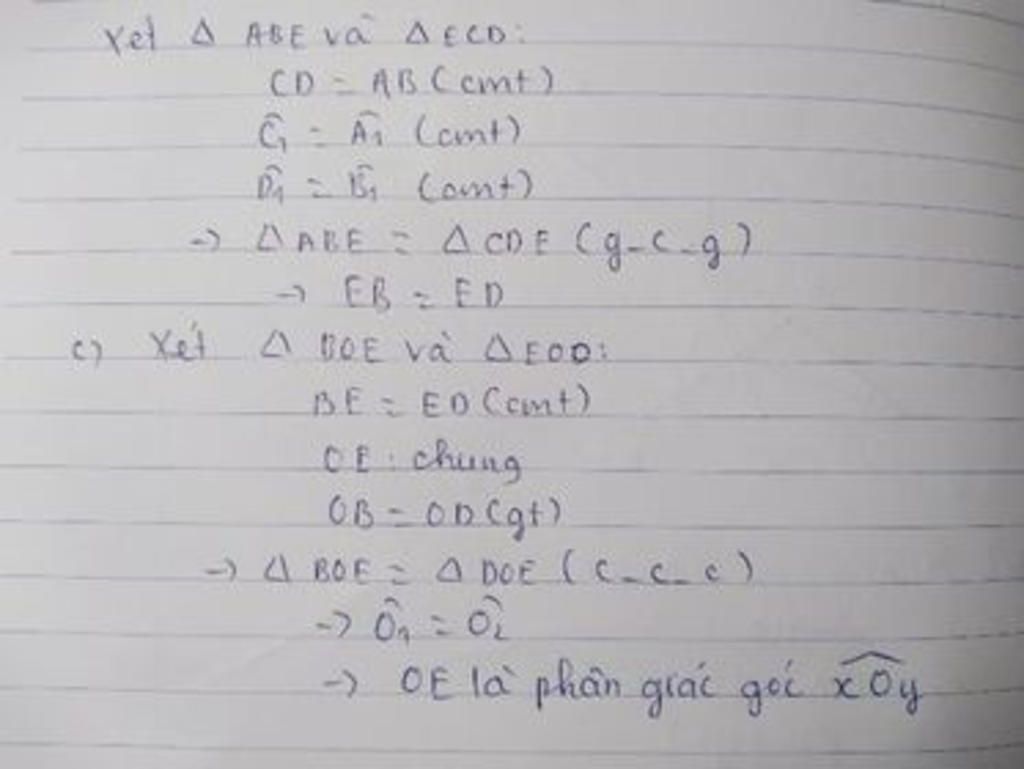 Xét Δ ABE và Δ ECD:
CD = AB (cmt)
Ĉ₁ = Â₁ (cmt)
D̂₁ = B̂₁ (cmt)
→ Δ ABE = Δ CDE (g-c-g)
→ EB = ED
c) Xét Δ BOE và Δ EOD:
BE = ED (cmt)
OE: chung
OB = OD (gt)
→ Δ BOE = Δ DOE (c-c-c)
→ Ô₁ = Ô₂
→ OE là phân giác góc xÔy